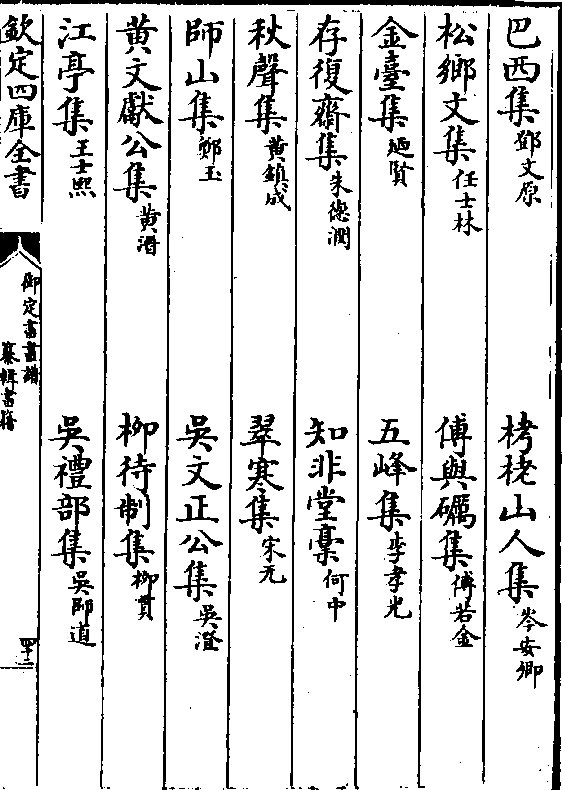 巴西集鄧文原　栲栳山人集岑安卿
松鄉文集任士林　傅與礪集傅若金
金臺集廼賢　五峰集李孝光
存復齋集朱德潤　知非堂稾何中
秋聲集黄鎮成　翠寒集宋元
師山集鄭玉　吳文正公集吳澄
黄文獻公集黄溍　柳待制集柳貫
江亭集王士熙　吳禮部集吳師道
欽定四庫全書
御定書畫譜
纂輯書籍
四十二